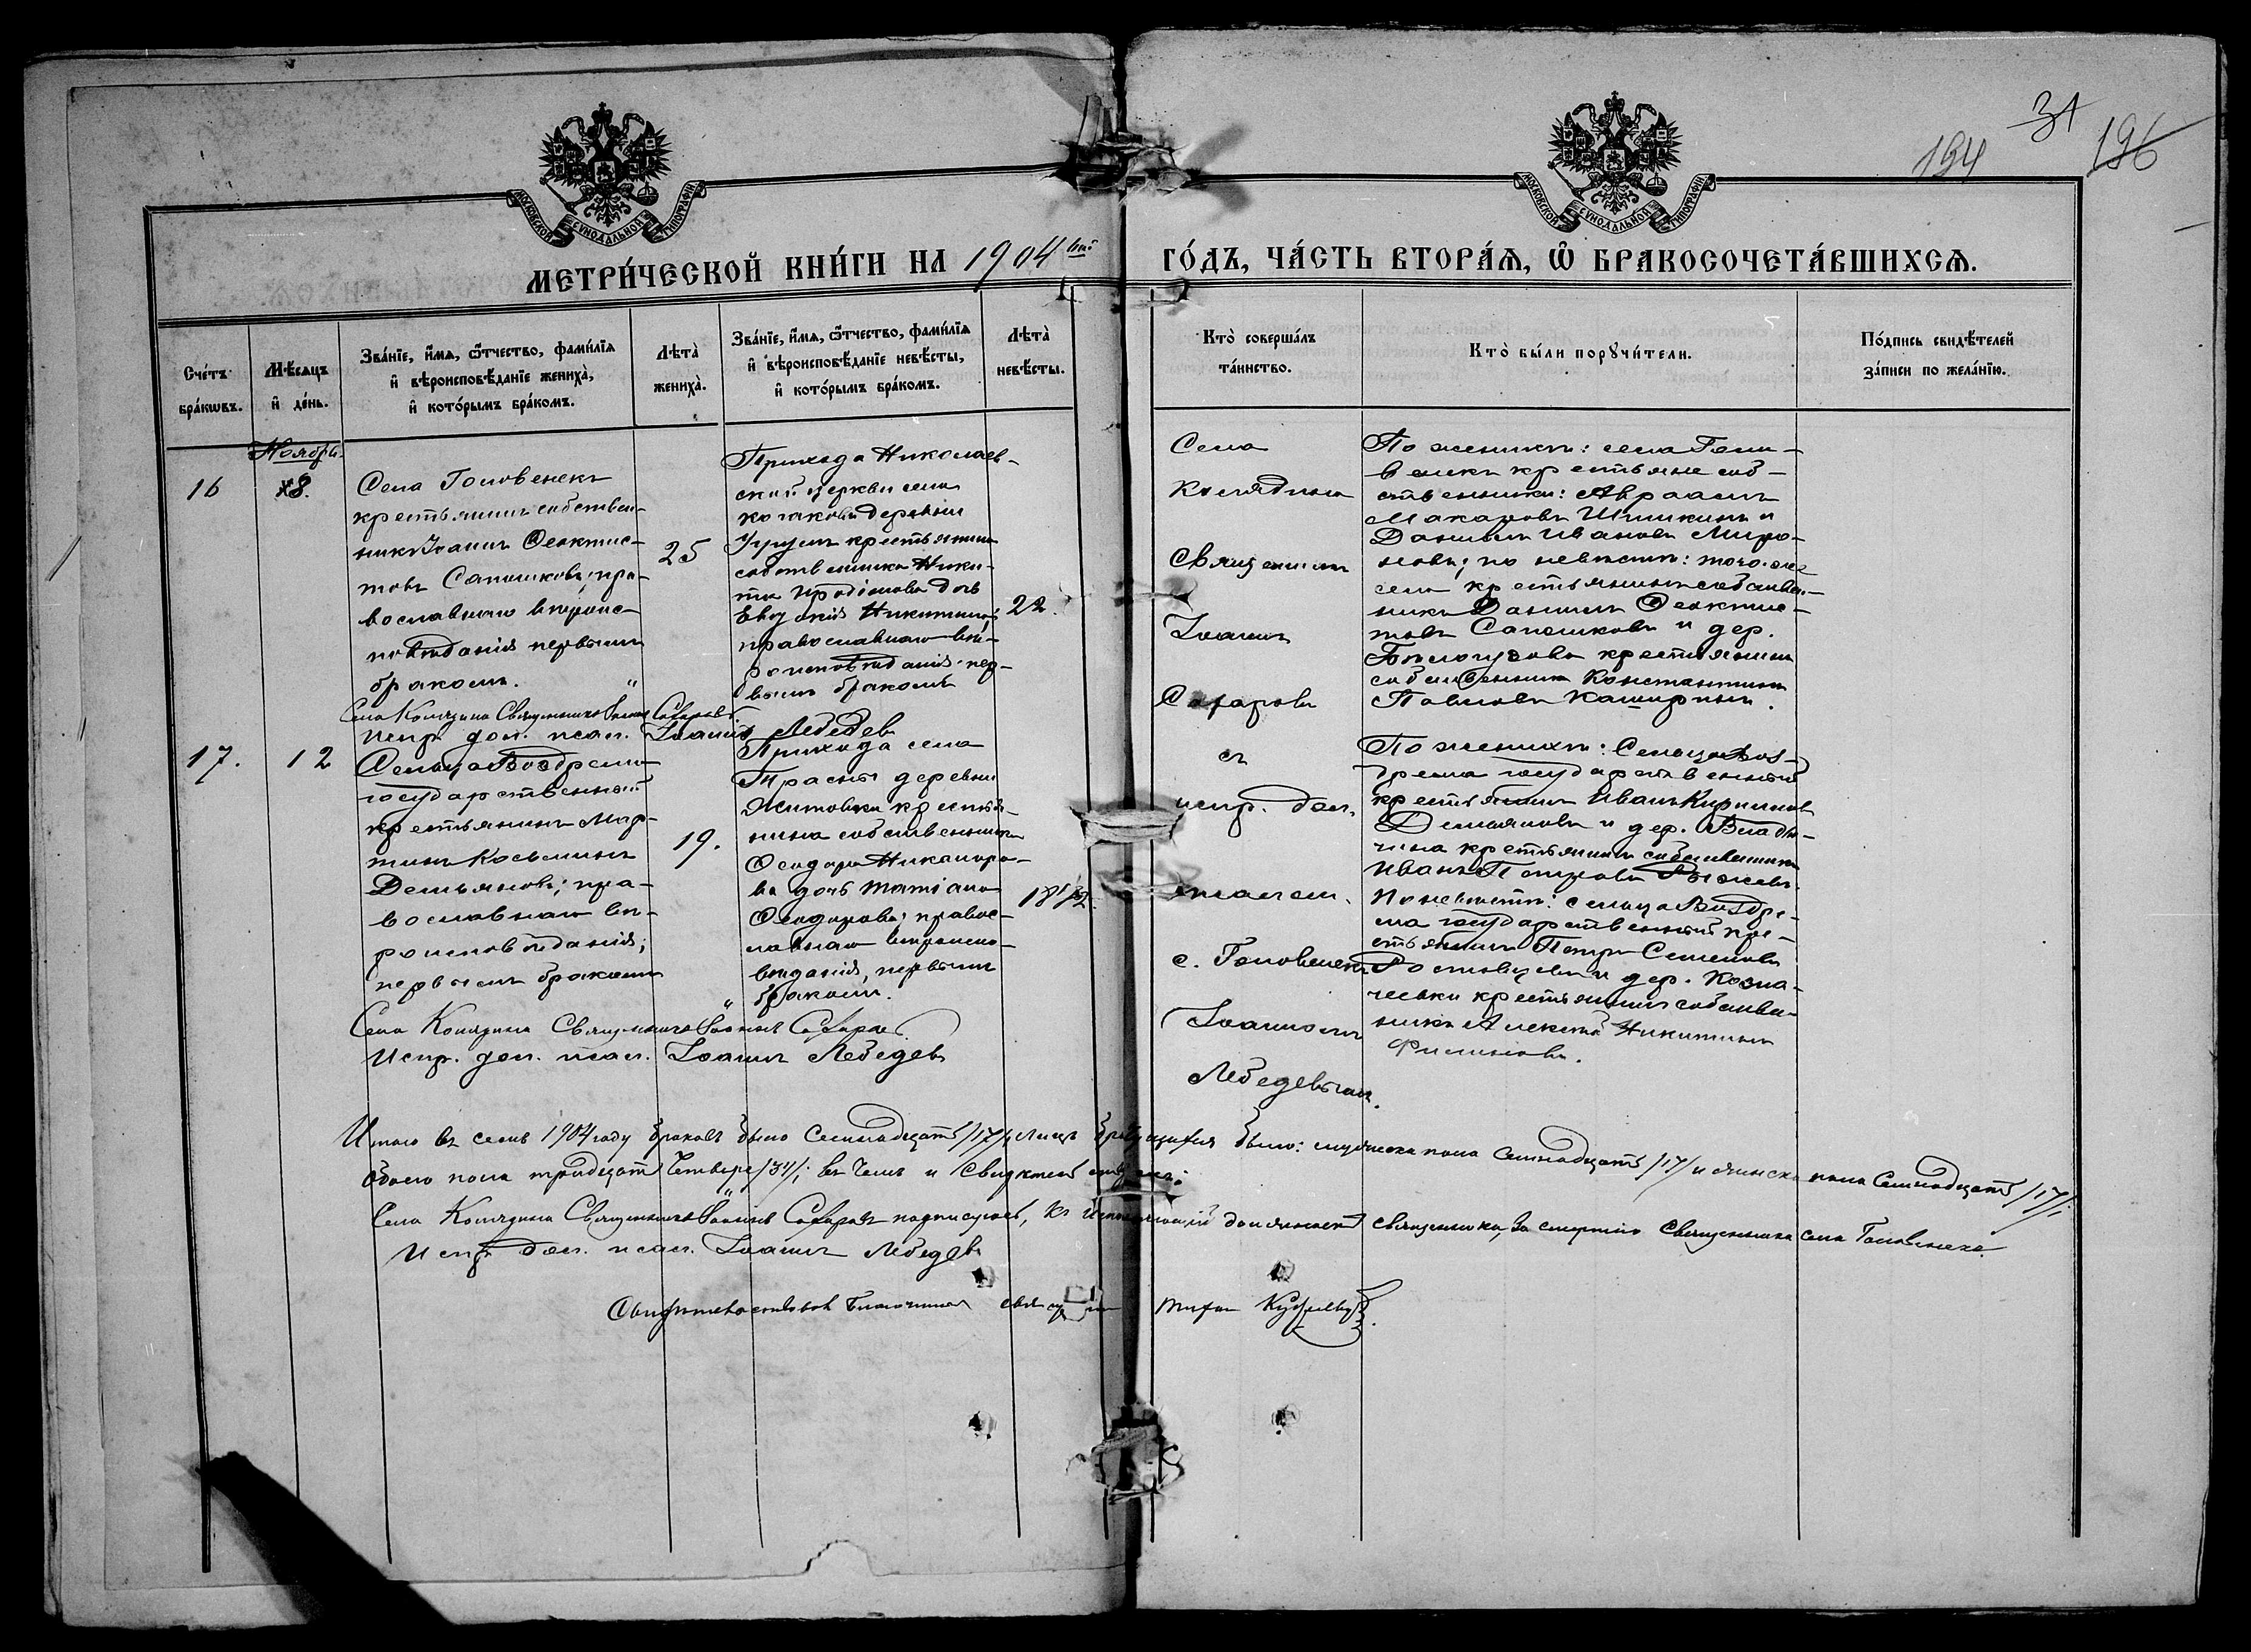 194 31 196
МОСКОВСКОЙ СУНОДАЛЬНОЙ ТИПОГРАФІИ
МОСКОВСКОЙ СУНОДАЛЬНОЙ ТИПОГРАФІИ
МЕТРИ́ЧЕСКОЙ КНИ́ГИ НА 1904 ГО́ДЪ, ЧА́СТЬ ВТОРА́Я, Ѡ БРАКОСОЧЕТА́ВШИХСЯ.
Сче́тъ
бра́кωвъ.
Мѣ́сяцъ
и҆ де́нь.
Зва́нїе, и҆́мя, ѻ҆́тчество, фами́лїя
и҆ вѣроисповѣ́данїе жениха̀,
и҆ кото́рымъ бра́комъ.
Лѣта̀
жениха̀.
Зва́нїе, и҆́мя, ѻ҆́тчество, фами́лїя
и҆ вѣроисповѣ́данїе невѣ́сты,
и҆ кото́рымъ бра́комъ.
Лѣта̀
невѣ́сты.
Кто̀ соверша́лъ
та́инство.
Кто̀ бы́ли порꙋчи́тели.
По́дпись свидѣ́телей
за́писи по жела́нїю.
Ноябрь.
16
8.
Села Головенекъ
крестьянинъ собствен-
никъ Іоаннъ Ѳеоктис-
товъ Сапошковъ; пра-
вославнаго вѣроис-
повѣданія первымъ
бракомъ.
25
Прихода Николаев-
ской церкви села
деревни
крестьянина
собственника Ники-
ты дочь
Евдокія Никитина;
православнаго вѣ-
роисповѣданія пер-
вымъ бракомъ
22.
Села Колядина Священникъ Іоаннъ Сахаровъ.
Испр. дол. псал. Іоаннъ Лебедевъ
Села
Колядина
Священникъ
Іоаннъ
Сахаровъ
съ
испр. дол.
псалом.
с. Головенекъ
Іоанномъ
Лебедевымъ.
По женихѣ: села Голо-
венекъ крестьяне соб-
ственники: Авраамъ
Макаровъ Шишкинъ и
Даніилъ Ивановъ Миро-
новъ; по невѣстѣ: того-же
села крестьянинъ собствен-
никъ Даніилъ Ѳеоктис-
товъ Сапошковъ и дер.
крестьянинъ
собственникъ Константинъ
Павловъ Каширинъ.
17.
12
Сельца Воздрема
государственный
крестьянинъ Мар-
тинъ Косьминъ
Демьяновъ; пра-
вославнаго вѣ-
роисповѣданія;
первымъ бракомъ
19.
Прихода села
деревни
Житовки крестья-
нина собственника
Ѳеодора Никаноро-
ва дочь Татіана
Ѳеодорова; правос-
лавнаго вѣроиспо-
вѣданія, первымъ
бракомъ.
18 1/2.
По женихѣ: Сельца Воз-
дрема государственный
крестьянинъ Иванъ Кирилловъ
Демьяновъ и дер. Влады-
чина крестьянинъ собственникъ
Иванъ Петровъ
По невѣстѣ: сельца Воздре-
ма государственный кре-
стьянинъ Петръ Семеновъ
и дер. Козна-
чеевки крестьянинъ собствен-
никъ Алексѣй Никитинъ
Филиновъ.
Села Колядина Священникъ Іоаннъ Сахаровъ
Испр. дол. псал. Іоаннъ Лебедевъ
Итого въ семъ 1904 году браковъ было Семнадцать /17/, лицъ было: мужеска пола Семнадцать /17/ и женска пола Семнадцать /17/;
обоего пола тридцать Четыре /34/; въ чемъ и Свидѣтельствуемъ:
Села Колядина Священникъ Іоаннъ Сахаровъ подписуюсь, должность священника, за смертію Священника села Головенекъ.
Испр. дол. псал. Іоаннъ Лебедевъ
Свидѣтельствовалъ Благочинный священникъ